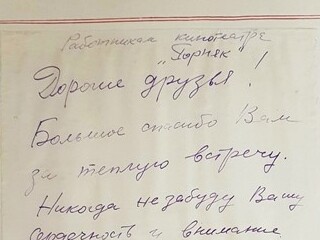 Работникам кинотеатра
„Горняк"
Дорогие друзья!
Большое спасибо Вам
за теплую встречу.
Никогда не забуду Вашу
сердечность и внимание